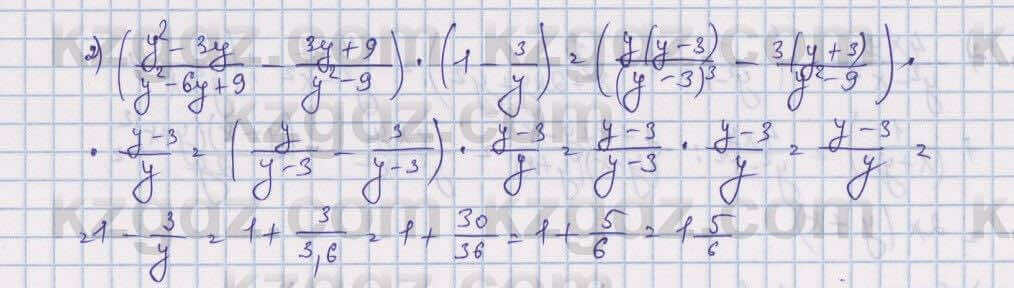 2) ((y² - 3y)/(y² - 6y + 9) - (3y + 9)/(y² - 9)) · (1 - 3/y) = (y(y - 3)/(y - 3)³ - 3(y + 3)/(y² - 9)) ·
· (y - 3)/y = (y/(y - 3) - 3/(y - 3)) · (y - 3)/y = (y - 3)/(y - 3) · (y - 3)/y = (y - 3)/y =
= 1 - 3/y = 1 + 3/3,6 = 1 + 30/36 = 1 + 5/6 = 1 5/6
kzgdz.com